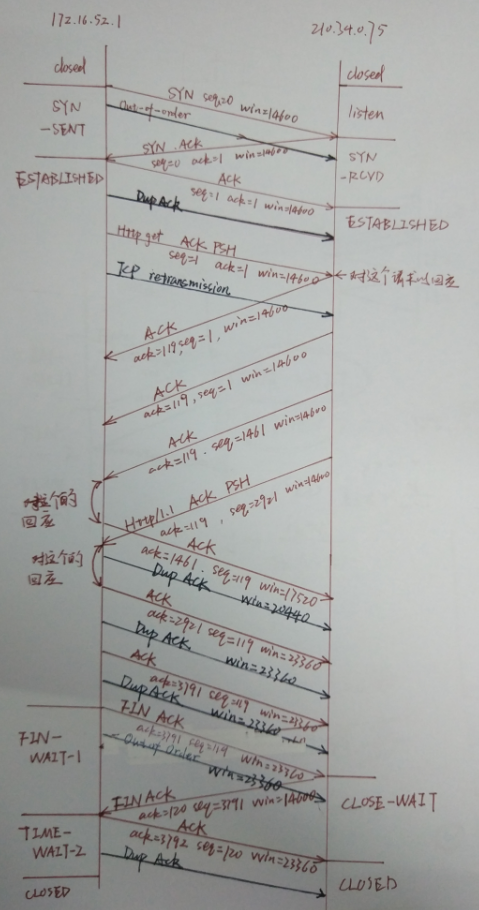 172.16.52.1
210.34.0.75
closed
closed
SYN seq=0 win=14600
Out-of-order
listen
SYN
-SENT
SYN. ACK
seq=0 ack=1 win=14600
SYN
-RCVD
ACK
seq=1 ack=1 win=14600
ESTABLISHED
Dup Ack
ESTABLISHED
Http get ACK PSH
seq=1 ack=1 win=14600
对这个请求的回应
TCP retransmission
ACK
ack=119, seq=1, win=14600
ACK
ack=119, seq=1 win=14600
ACK
ack=119. seq=1461 win=14600
对这个的
回应
Http/1.1 ACK PSH
ack=119, seq=2921 win=14600
对这个的
回应
ACK
ack=1461. seq=119 win=17520
Dup ACK win=20440
ACK
ack=2921 seq=119 win=23360
Dup ACK win=23360
ACK
ack=3791 seq=119 win=23360
Dup ACK win=23360
FIN ACK
ack=3791 seq=119 win=23360
FIN-
WAIT-1
Out of Order
win=23360
CLOSE-WAIT
FIN ACK
ack=120 seq=3791 win=14600
ACK
ack=3792 seq=120 win=23360
TIME-
WAIT-2
Dup Ack
CLOSED
CLOSED